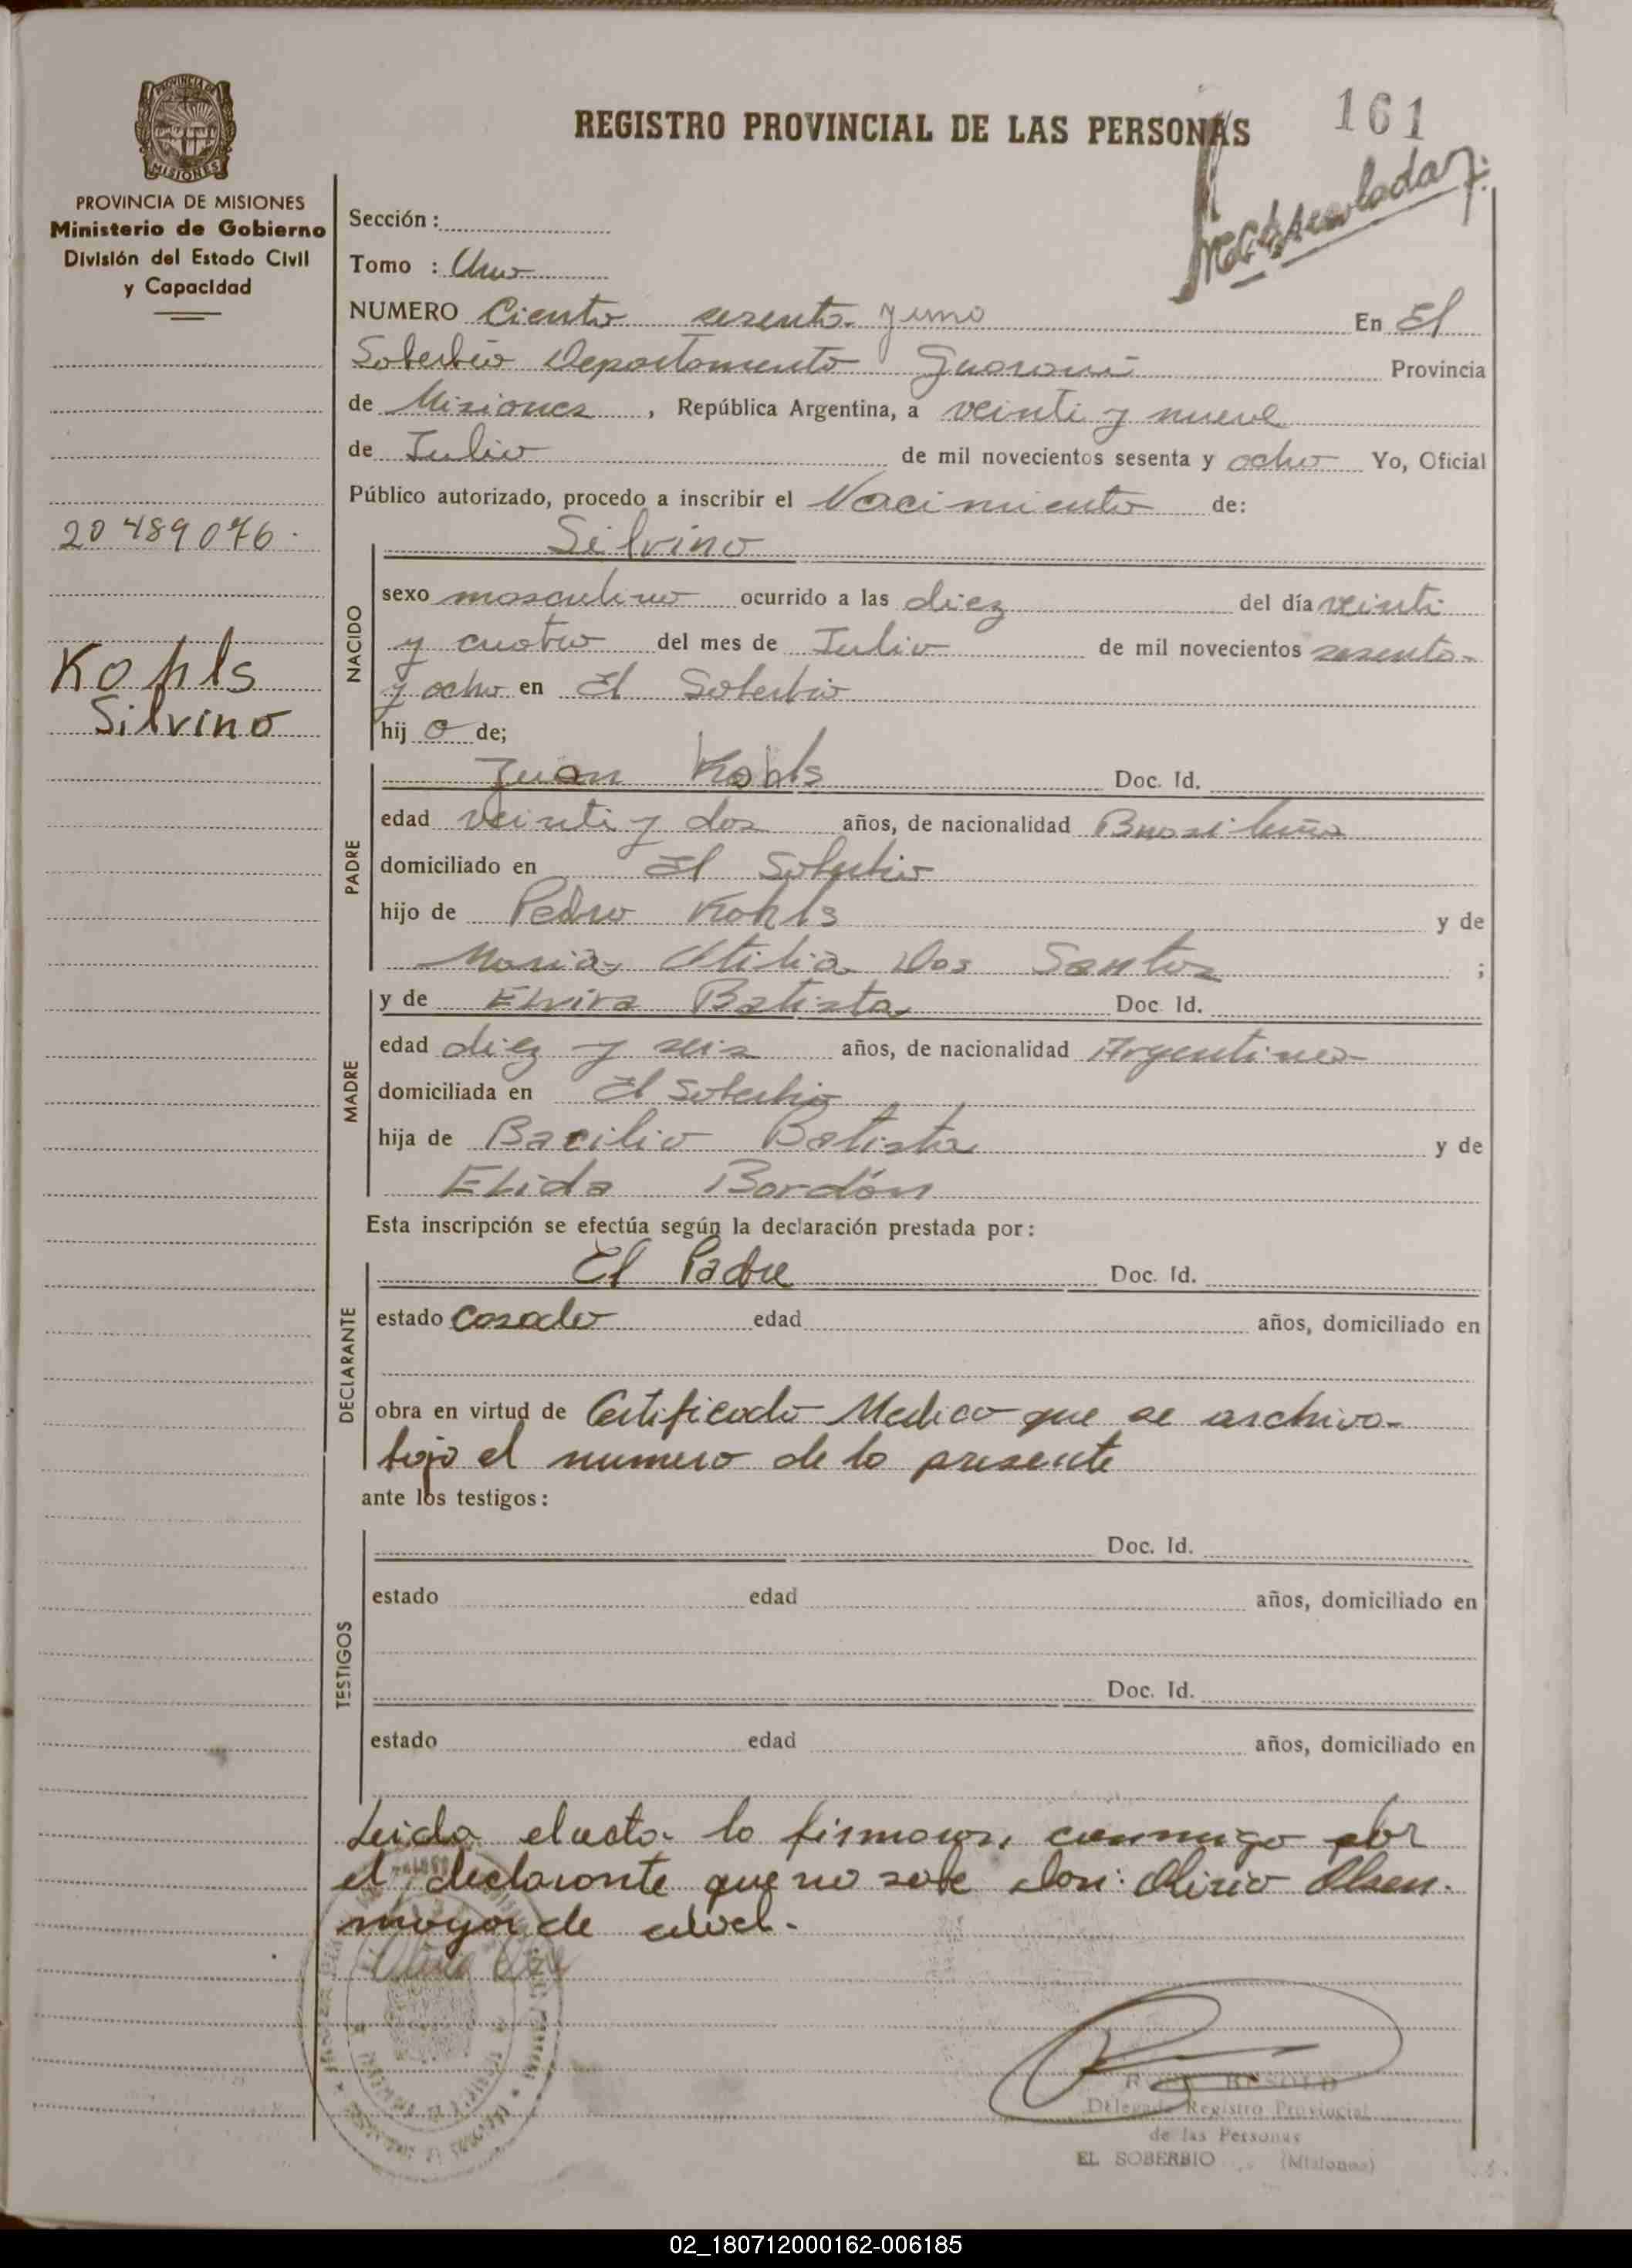 161
REGISTRO PROVINCIAL DE LAS PERSONAS
PROVINCIA DE MISIONES
Ministerio de Gobierno
División del Estado Civil
y Capacidad
20 489 076.
Kohls
Silvino
Sección :
Tomo : Uno
NUMERO Ciento sesenta y uno En El
Soberbio Departamento Guarani Provincia
de Misiones , República Argentina, a veinti y nueve
de Julio de mil novecientos sesenta y ocho Yo, Oficial
Público autorizado, procedo a inscribir el Nacimiento de:
NACIDO
Silvino
sexo masculino ocurrido a las diez del día veinti
y cuatro del mes de Julio de mil novecientos sesenta
y ocho en El Soberbio
hij o de;
PADRE
Juan Kohls Doc. Id.
edad veinti y dos años, de nacionalidad Brasileña
domiciliado en El Soberbio
hijo de Pedro Kohls y de
Maria Otilia Dos Santos ;
MADRE
y de Elvira Batista Doc. Id.
edad diez y seis años, de nacionalidad Argentina
domiciliada en El Soberbio
hija de Bacilio Batista y de
Elida Bordón
Esta inscripción se efectúa según la declaración prestada por:
DECLARANTE
El Padre Doc. Id.
estado casado edad años, domiciliado en
obra en virtud de Certificado Medico que se archiva
bajo el numero de la presente
ante los testigos:
TESTIGOS
Doc. Id.
estado edad años, domiciliado en
Doc. Id.
estado edad años, domiciliado en
Leida el acta la firman, conmigo por
el declarante que no sabe don: Olirio Olsen.
mayor de edad.-
Delegado Registro Provincial
de las Personas
EL SOBERBIO (Misiones)
02_180712000162-006185